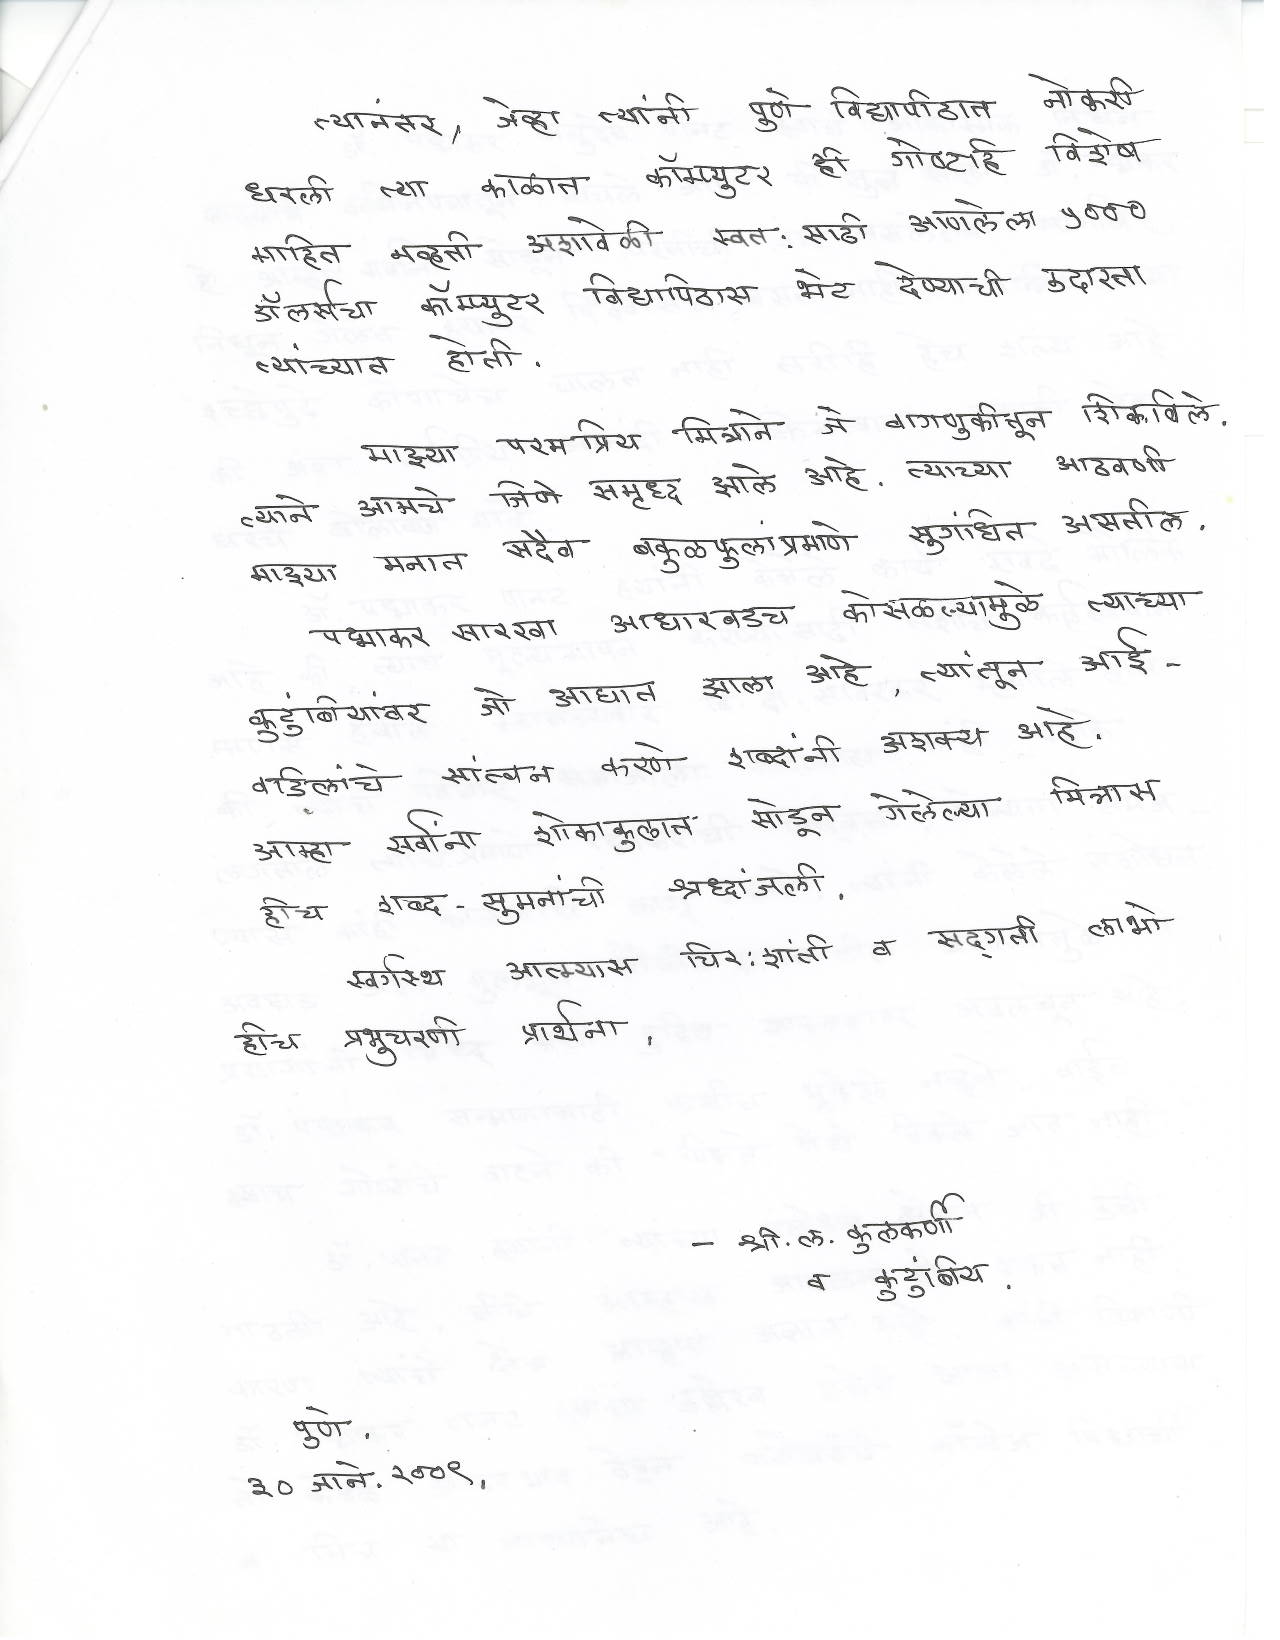 त्यानंतर, जेव्हा त्यांनी पुणे विद्यापीठात नोकरी
धरली त्या काळात कॉम्प्युटर ही गोष्टहि विशेष
माहित नव्हती अशावेळी स्वत: साठी आणलेला ५०००
डॉलर्सचा कॉम्प्युटर विद्यापिठास भेट देण्याची उदारता
त्यांच्यात होती.
माझ्या परमप्रिय मित्राने जे वागणुकीतून शिकविले.
त्याने आमचे जिणे समृध्द झाले आहे. त्याच्या आठवणी
माझ्या मनात सदैव बकुळफुलांप्रमाणे सुगंधित असतील.
पद्माकर सारखा आधारवडच कोसळल्यामुळे त्याच्या
कुटुंबियांवर जो आघात झाला आहे, त्यांतून आई-
वडिलांचे सांत्वन करणे शब्दांनी अशक्य आहे.
आम्हा सर्वांना शोकाकुलात सोडून गेलेल्या मित्रास
हीच शब्द-सुमनांची श्रध्दांजली.
स्वर्गस्थ आत्म्यास चिर:शांती व सद्‌गती लाभो
हीच प्रभुचरणी प्रार्थना.
- श्री. ल. कुलकर्णी
व कुटुंबिय.
पुणे.
३० जाने. २००९.